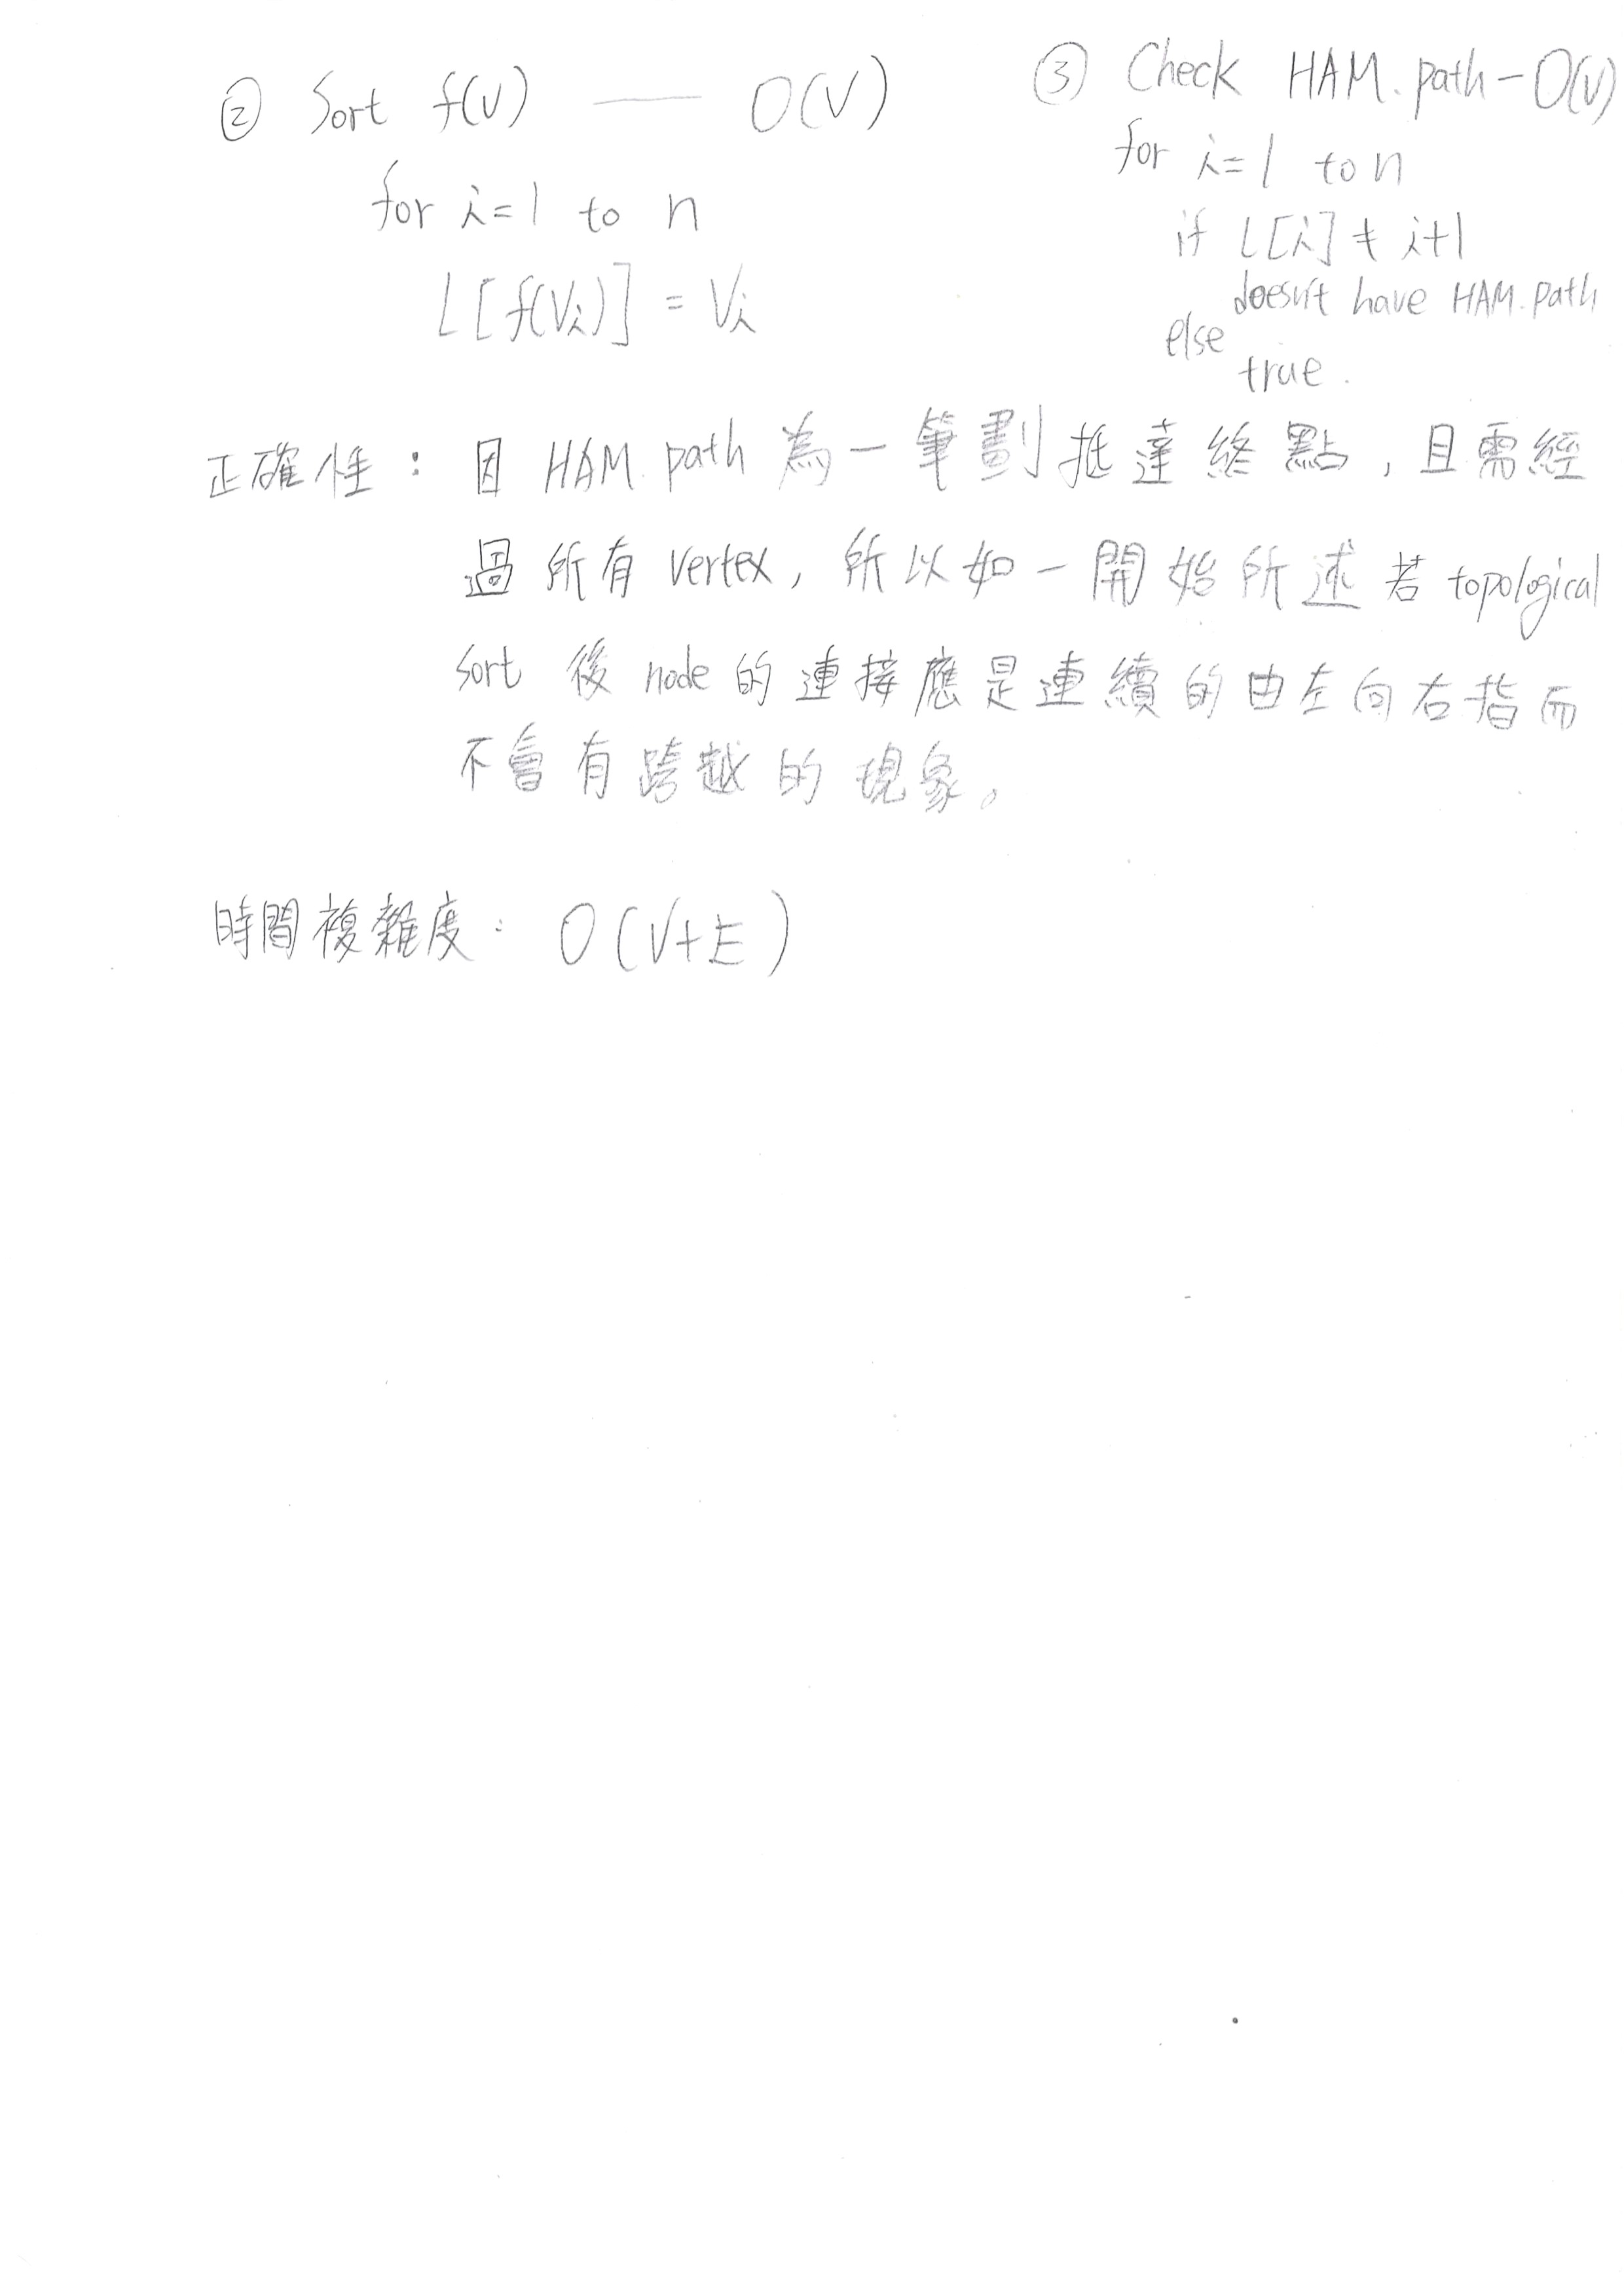 ② Sort f(V) — O(V)
for i=1 to n
L[f(Vi)] = Vi
③ Check HAM. path – O(V)
for i=1 to n
if L[i] ≠ i+1
doesn't have HAM. path
else
true.
正確性： 因 HAM. path 為一筆劃抵達終點，且需經
過所有 vertex, 所以如一開始所述若 topological
sort 後 node 的連接應是連續的由左向右指而
不會有跨越的現象。
時間複雜度： O(V+E)